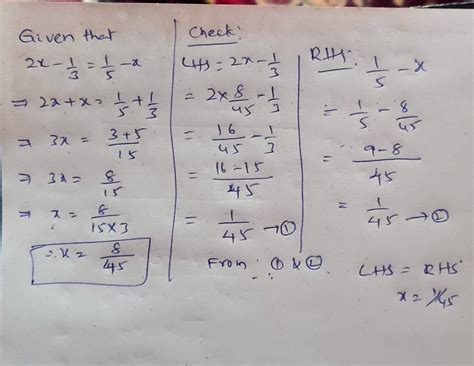 Given that
2x - 1/3 = 1/5 - x
⇒ 2x + x = 1/5 + 1/3
⇒ 3x = 3+5/15
⇒ 3x = 8/15
⇒ x = 8/15×3
∴ x = 8/45
Check:
LHS = 2x - 1/3
= 2× 8/45 - 1/3
= 16/45 - 1/3
= 16-15/45
= 1/45 → ①
From ① & ②
RHS: 1/5 - x
= 1/5 - 8/45
= 9-8/45
= 1/45 → ②
LHS = RHS
x = 1/45